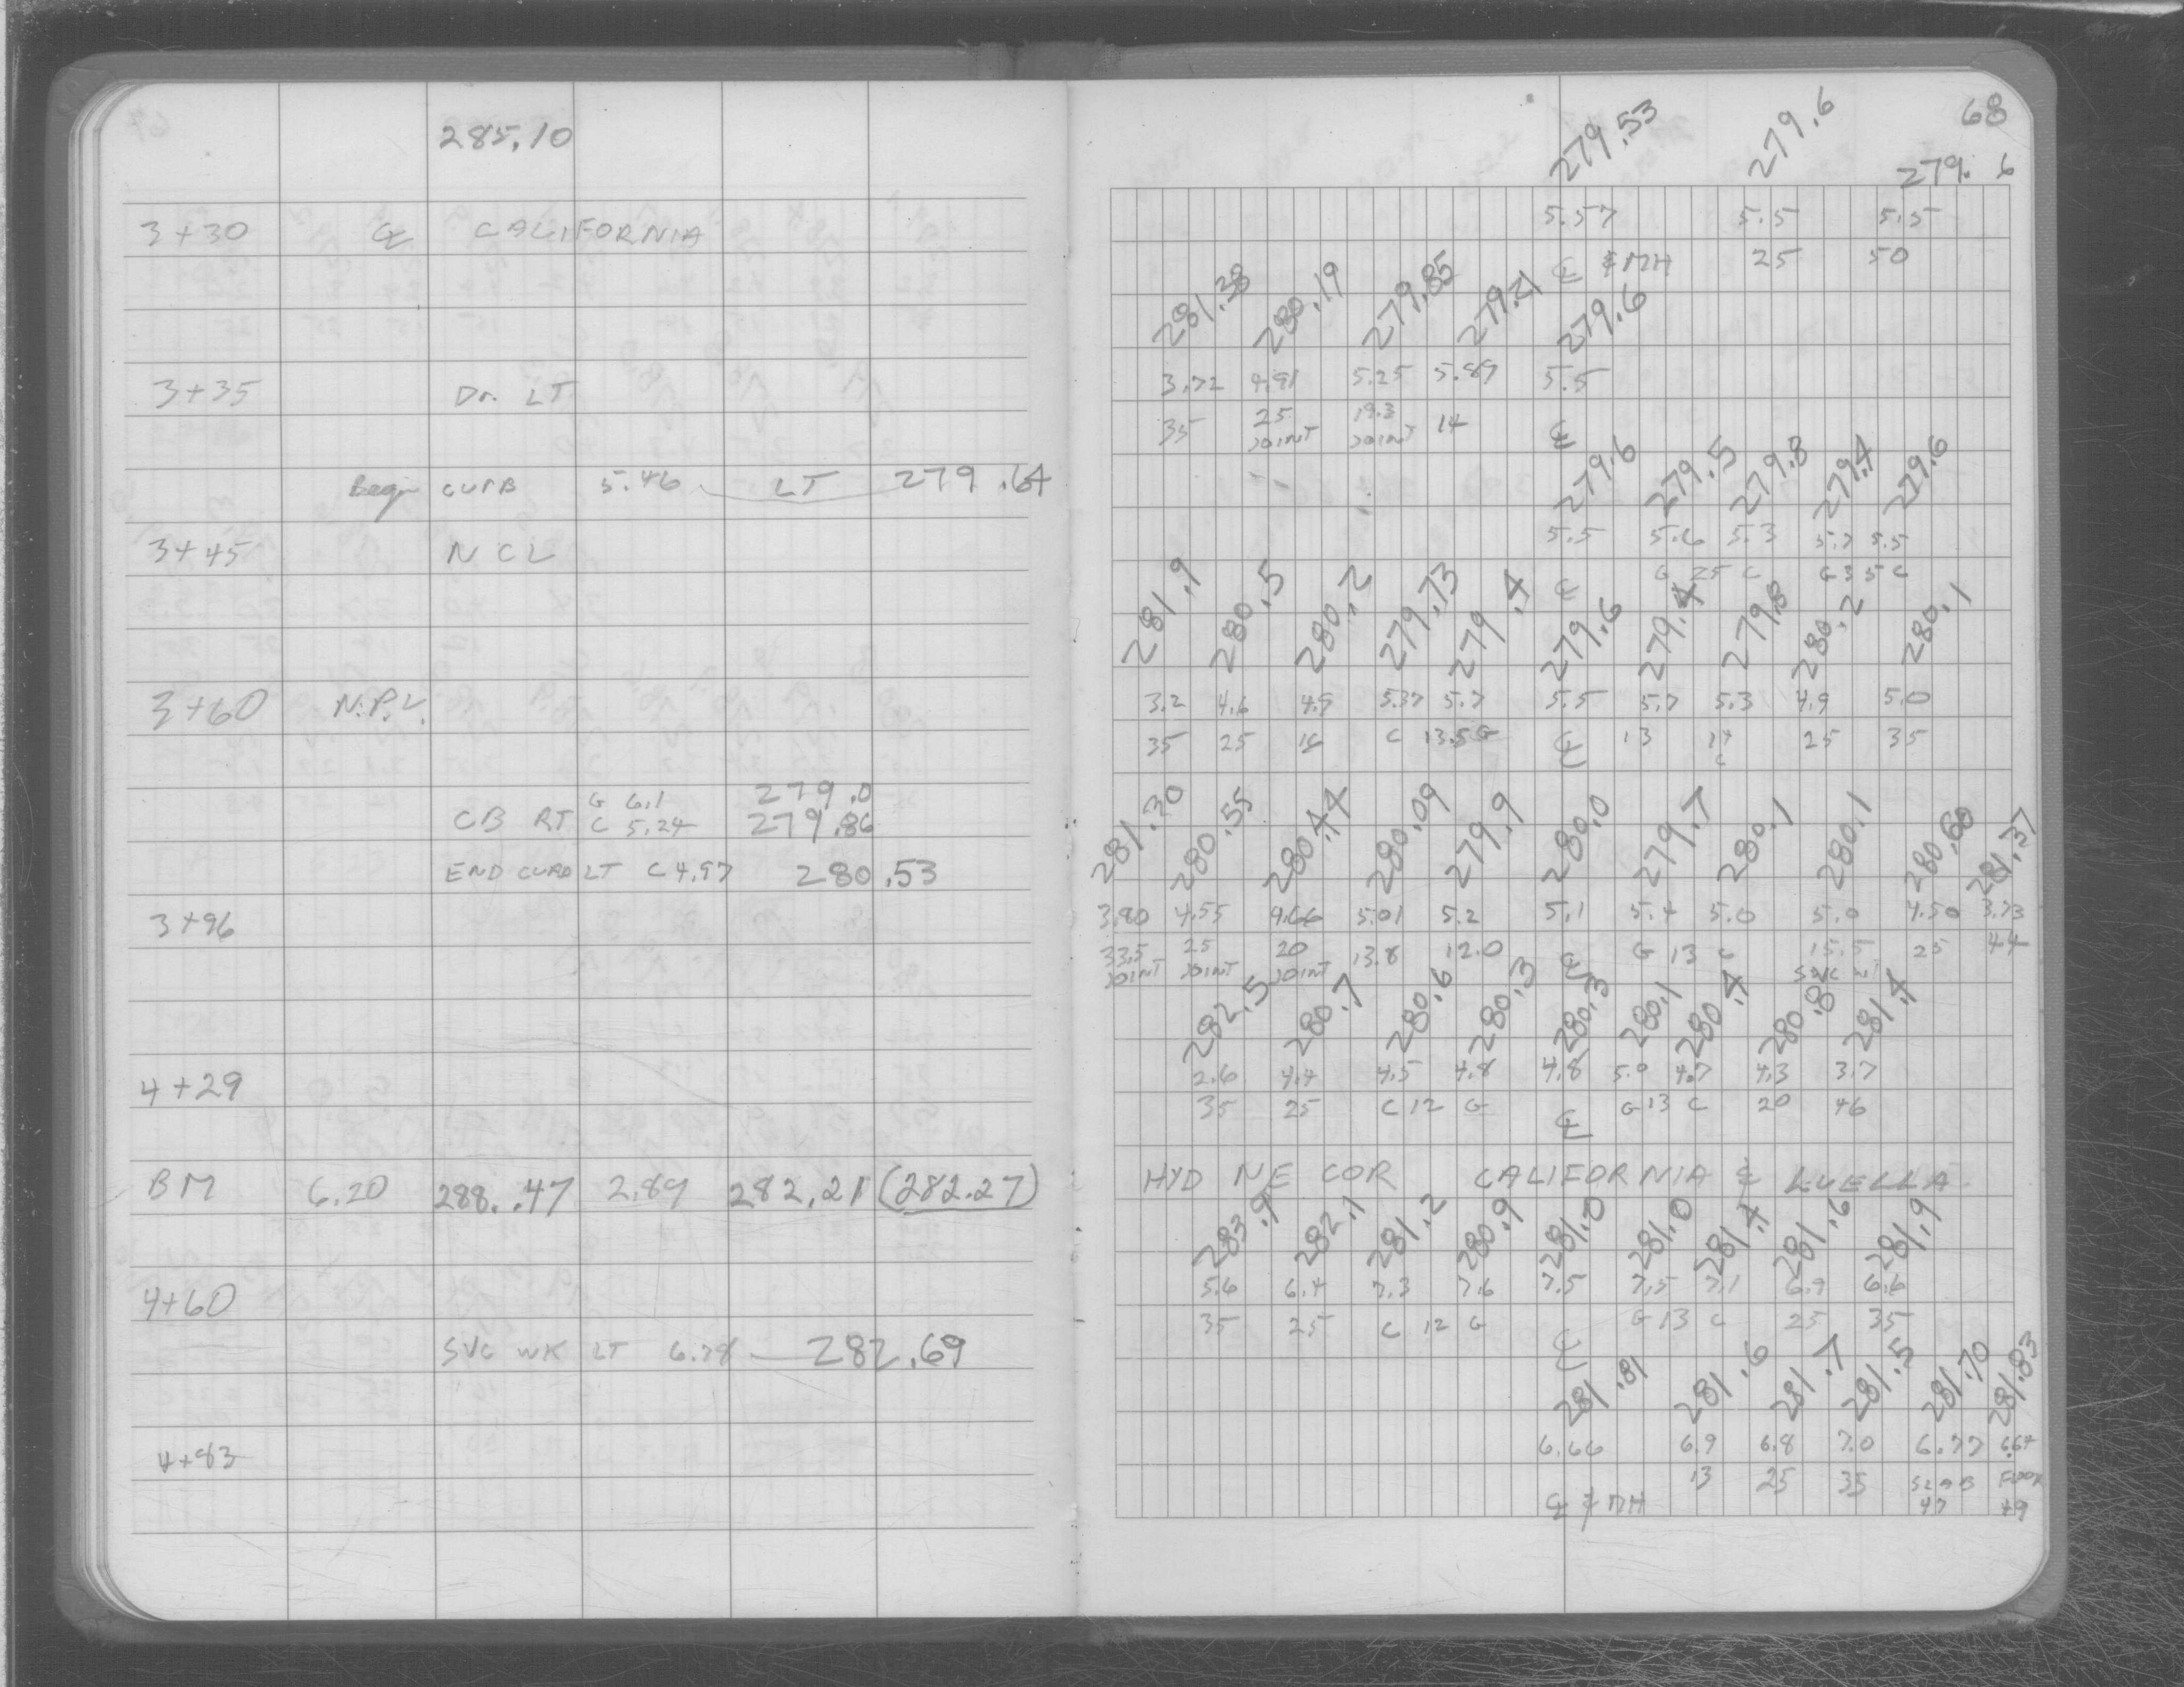 285.10
3+30 ℄ CALIFORNIA
3+35 Dr. LT
Begin CURB 5.46 LT 279.64
3+45 N C L
3+60 N.P.L.
G 6.1 279.0
CB RT C 5.24 279.86
END CURB LT C 4.97 280.53
3+96
4+29
BM 6.20 288.47 2.89 282.21 (282.27)
4+60
SVC WK LT 6.78 282.69
4+83
68
279.53 279.6 279.6
5.57 5.5 5.5
℄ & MH 25 50
281.38 280.19 279.85 279.21 279.6
3.72 4.91 5.25 5.89 5.5
35 25 JOINT 19.3 JOINT 14 ℄
279.6 279.5 279.8 279.4 279.6
5.5 5.6 5.3 5.7 5.5
℄ G 25 C G 35 C
281.9 280.5 280.2 279.73 279.4 279.6 279.4 279.8 280.2 280.1
3.2 4.6 4.9 5.37 5.7 5.5 5.7 5.3 4.9 5.0
35 25 C 13.5 G ℄ 13 14 C 25 35
281.30 280.55 280.44 280.09 279.9 280.0 279.7 280.1 280.1 280.60 281.37
3.80 4.55 4.66 5.01 5.2 5.1 5.4 5.0 5.0 4.50 3.73
33.5 JOINT 25 JOINT 20 JOINT 13.8 12.0 ℄ G 13 C 15.5 25 44
282.5 280.7 280.6 280.3 280.3 280.1 280.4 280.8 281.4
2.6 4.4 4.5 4.8 4.8 5.0 4.7 4.3 3.7
35 25 C 12 G ℄ G 13 C 20 46
HYD NE COR CALIFORNIA & LUELLA
283.9 282.1 281.2 280.9 281.0 281.0 281.4 281.6 281.9
5.6 6.4 7.3 7.6 7.5 7.5 7.1 6.9 6.6
35 25 C 12 G ℄ G 13 C 25 35
281.81 281.6 281.7 281.5 281.70 281.83
6.66 6.9 6.8 7.0 6.77 6.64
℄ & MH 13 25 35 SLAB 47 FLOOR 49